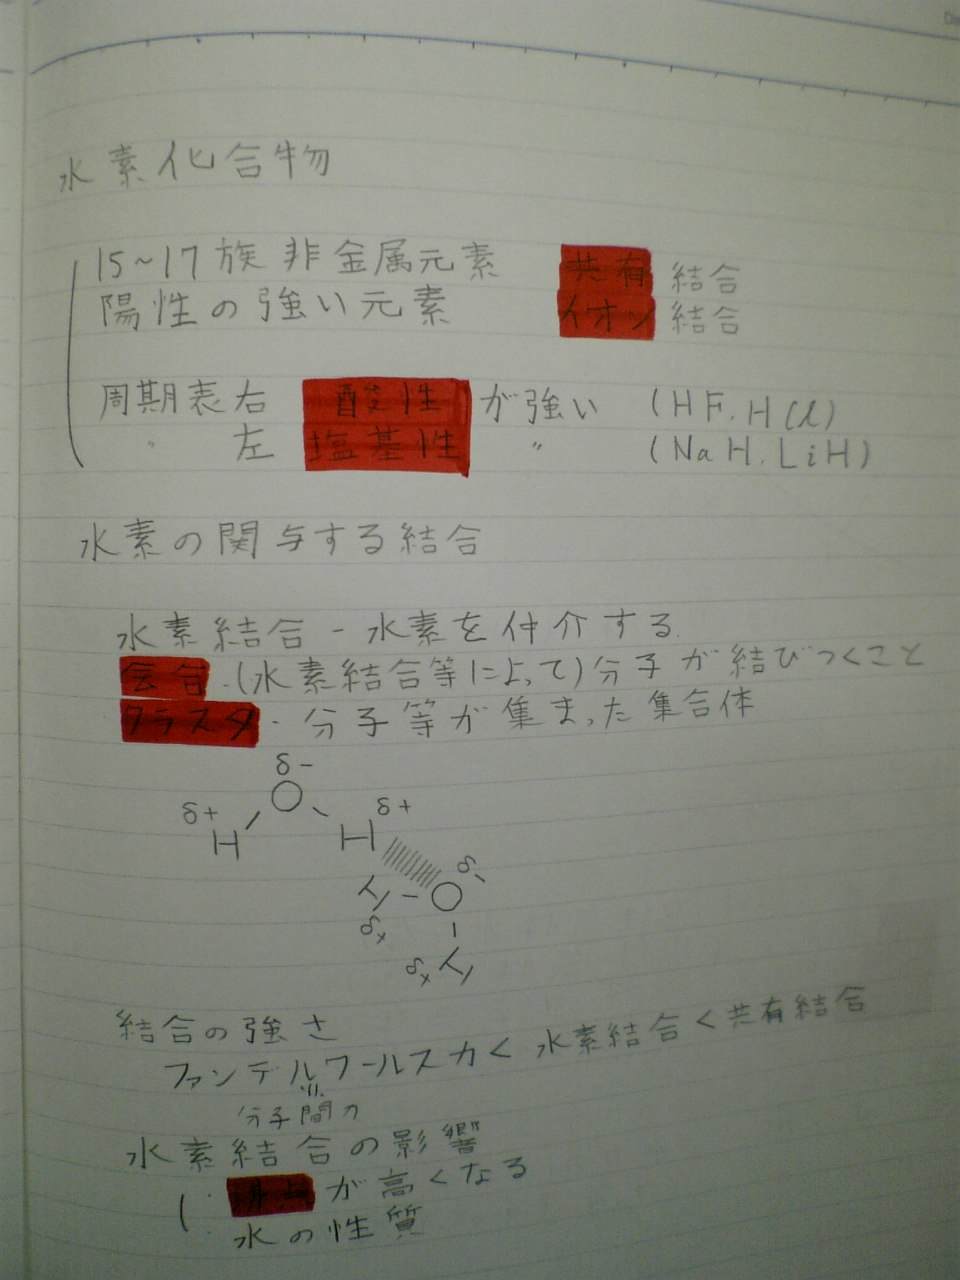 水素化合物
15~17族 非金属元素 共有結合
陽性の強い元素 イオン結合
周期表右 酸性 が強い (HF. HCl)
〃 左 塩基性 〃 (NaH. LiH)
水素の関与する結合
水素結合 - 水素を仲介する
会合 - (水素結合等によって)分子が結びつくこと
クラスタ - 分子等が集まった集合体
δ-
O
δ+ H H δ+
H - O δ-
δ+
δ+ H
結合の強さ
ファンデルワールス力 < 水素結合 < 共有結合
分子間力
水素結合の影響
沸点が高くなる
水の性質